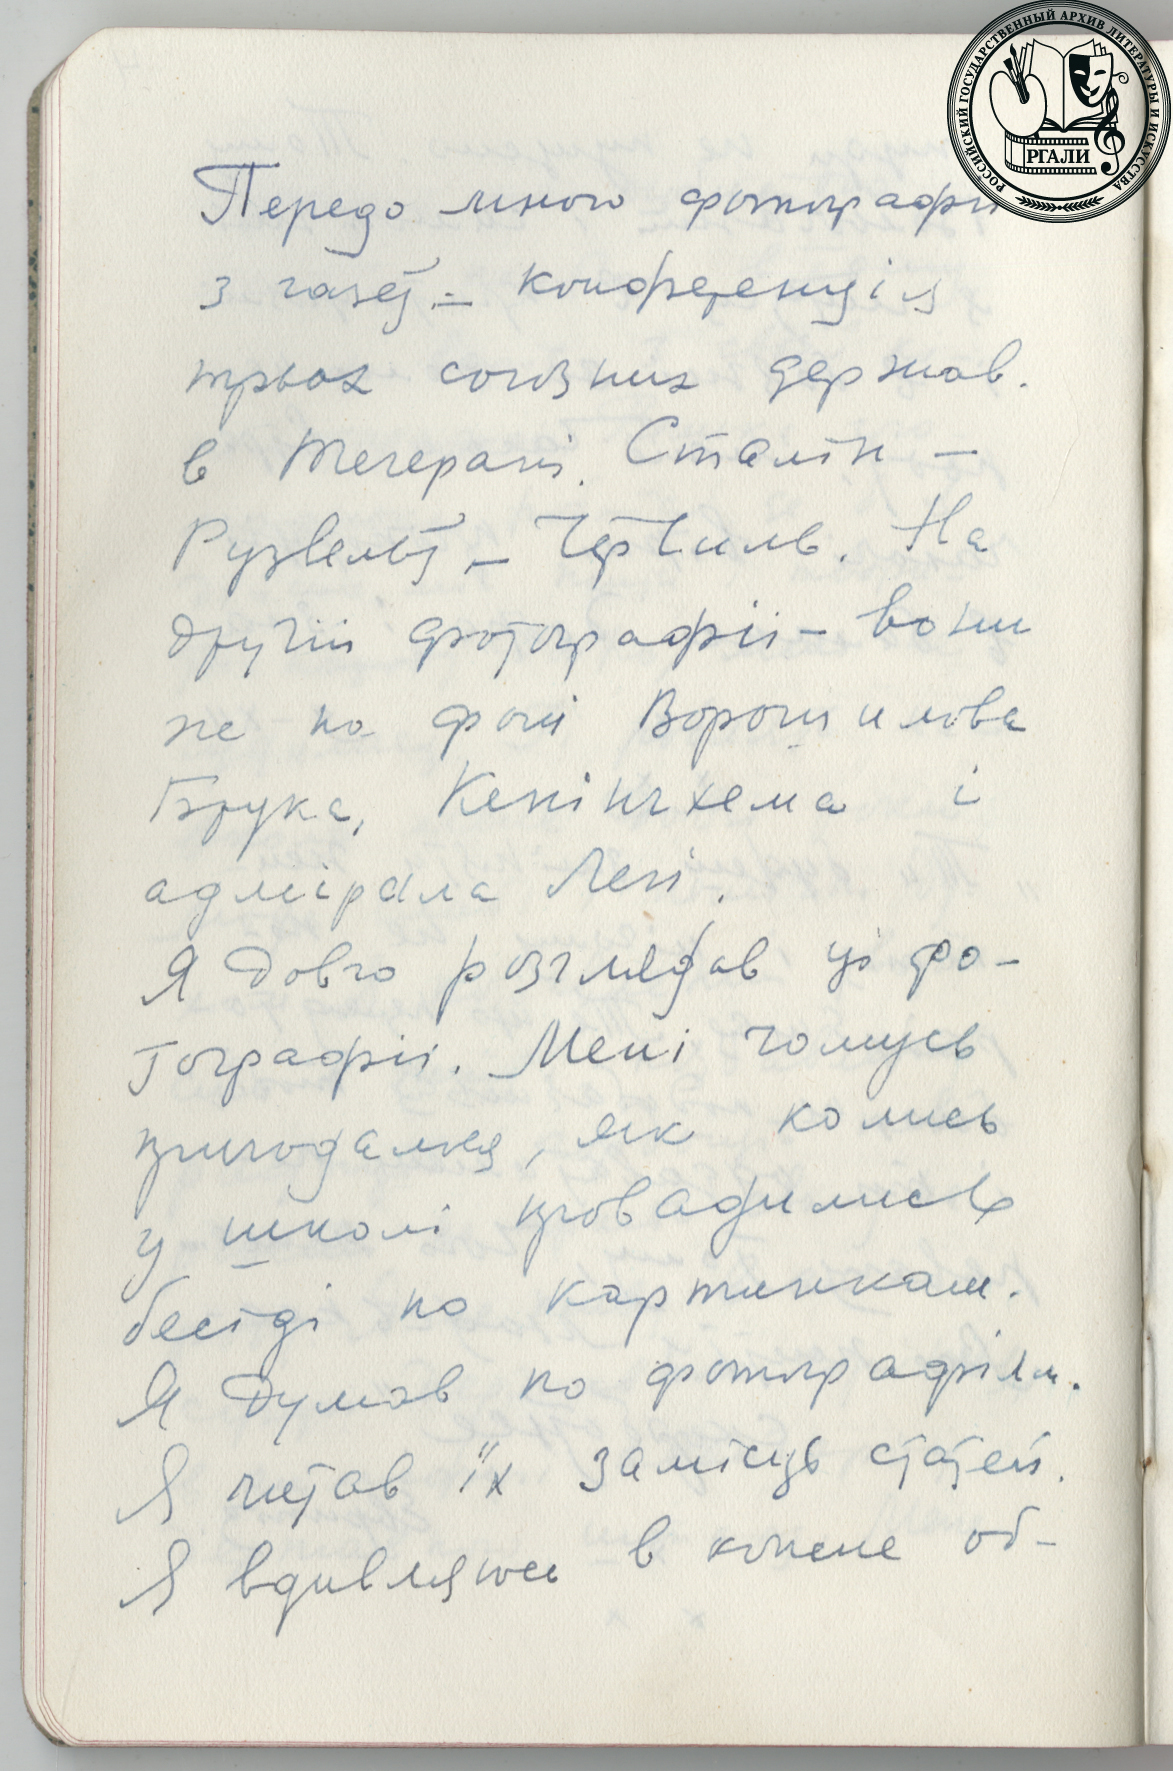 РОССИЙСКИЙ ГОСУДАРСТВЕННЫЙ АРХИВ ЛИТЕРАТУРЫ И ИСКУССТВА
РГАЛИ
Передо мною фотографії
з газет – конференція
трьох союзних держав.
в Тегерані. Сталін –
Рузвельт – Черчиль. На
другій фотографії – вони
же на фоні Ворошилова
Брука, Кенінгхема і
адмірала Легі.
Я довго розглядав ці фо-
тографії. Мені чомусь
пригадалися, як колись
у школі провадились
бесіді по картинкам.
Я думав по фотографіям.
Я читав їх замісць статей.
Я вдивляюсь в кожне об-